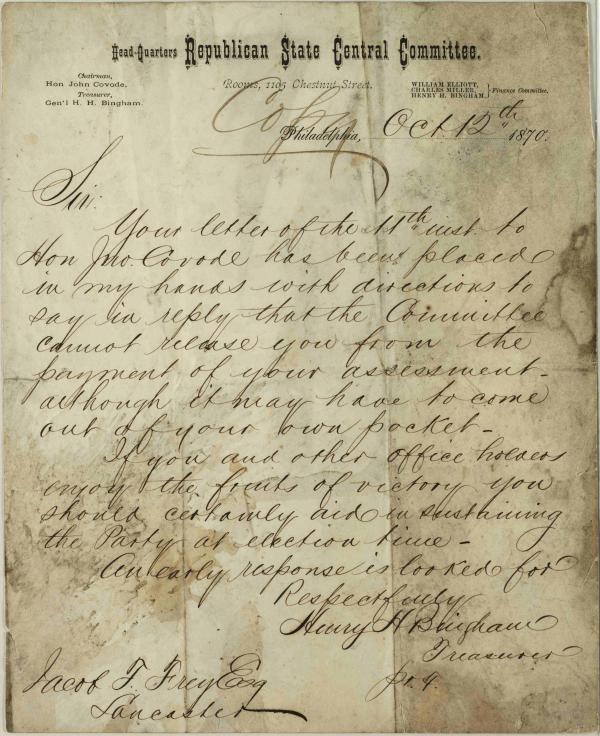 Head-Quarters Republican State Central Committee.
Chairman,
Hon John Covode,
Treasurer,
Gen'l H. H. Bingham.
Rooms, 1105 Chestnut Street.
WILLIAM ELLIOTT,
CHARLES MILLER,
HENRY H. BINGHAM.
Finance Committee.
Copy
Philadelphia, Oct 12th 1870.
Sir:
Your letter of the 11th inst to
Hon Jno. Covode has been placed
in my hands with directions to
say in reply that the Committee
cannot release you from the
payment of your assessment-
although it may have to come
out of your own pocket-
If you and other office holders
enjoy the fruits of victory you
should certainly aid in sustaining
the Party at election time-
An early response is looked for
Respectfully
Henry H Bingham
Treasurer
Jacob F. Frey Esq
Lancaster